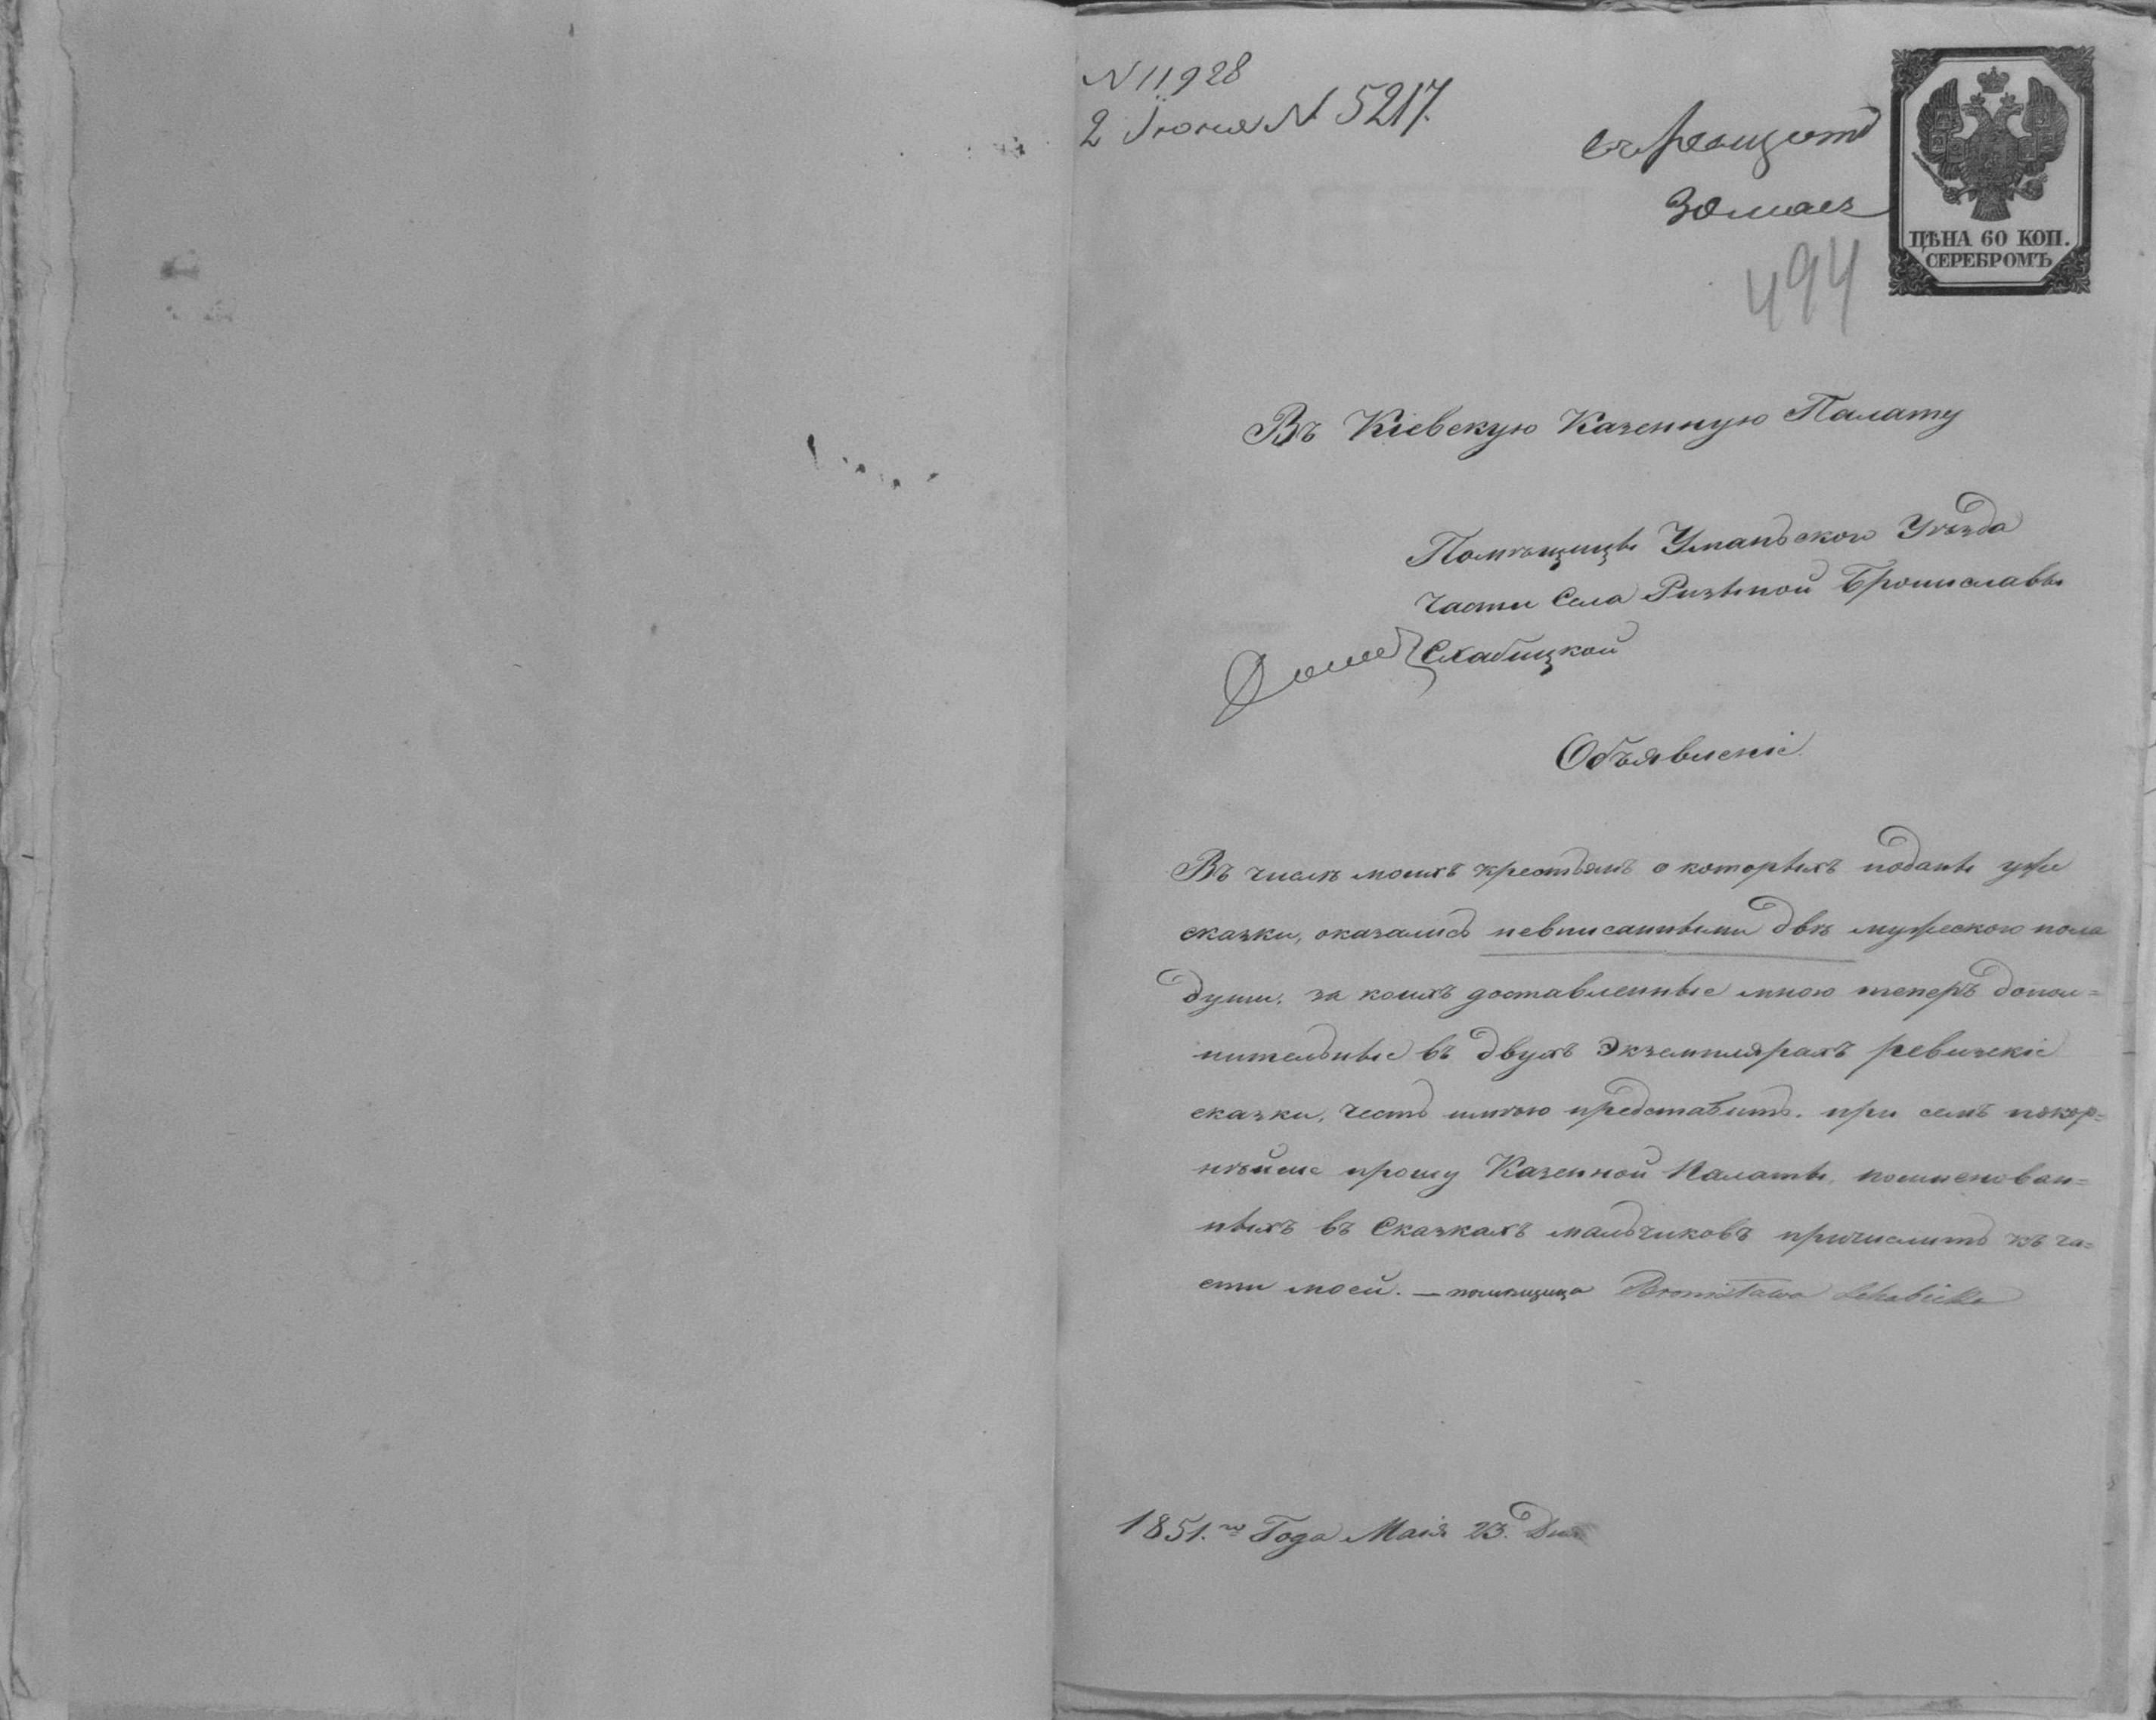 N 11928
2 Іюня N 5217.
30 мая
494
ЦѢНА 60 КОП.
СЕРЕБРОМЪ
Въ Кіевскую Казенную Палату
Помѣщицы Уманьского Уѣзда
части Села Ризыной Брониславы
Схабицкой
Объявленіе.
Въ числѣ моихъ крестьянъ о которыхъ поданы уже
сказки, оказались невписанными двѣ мужеского пола
души, за коихъ доставленные мною теперъ допол=
нительные въ двухъ Экземплярахъ ревизскіе
сказки, честь имѣю представить. при семъ покор=
нѣйше прошу Казенной Палаты, поименован=
ныхъ въ Сказкахъ мальчиковъ причислить къ ча=
сти моей. — помѣщица Bronisława Schabicka
1851.го Года Маія 23. Дня